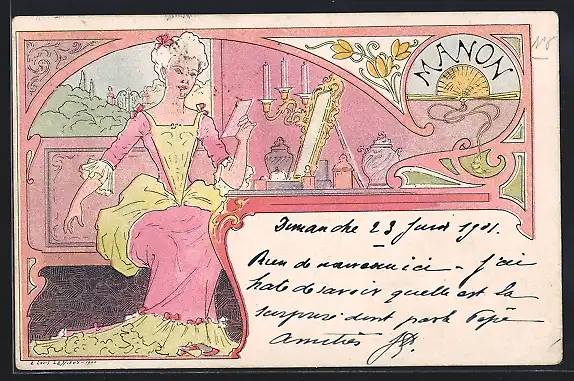 MANON
N° 6
Dimanche 23 Juin 1901.
Rien de nouveau ici - j'ai
hate de savoir quelle est la
surprise dont parle Pépé
Amitiés